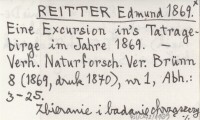 REITTER Edmund 1869.x
Eine Excursion in's Tatrage-
birge im Jahre 1869. —
Verh. Naturforsch. Ver. Brünn
8 (1869, druk 1870), nr 1, Abh.:
3-25.
Zbieranie i badanie chrząszczy